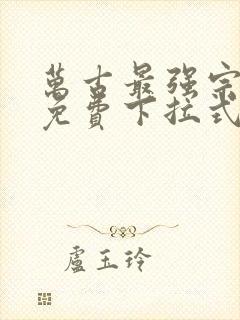 萬古最强宗
免費下拉式
盧玉玲